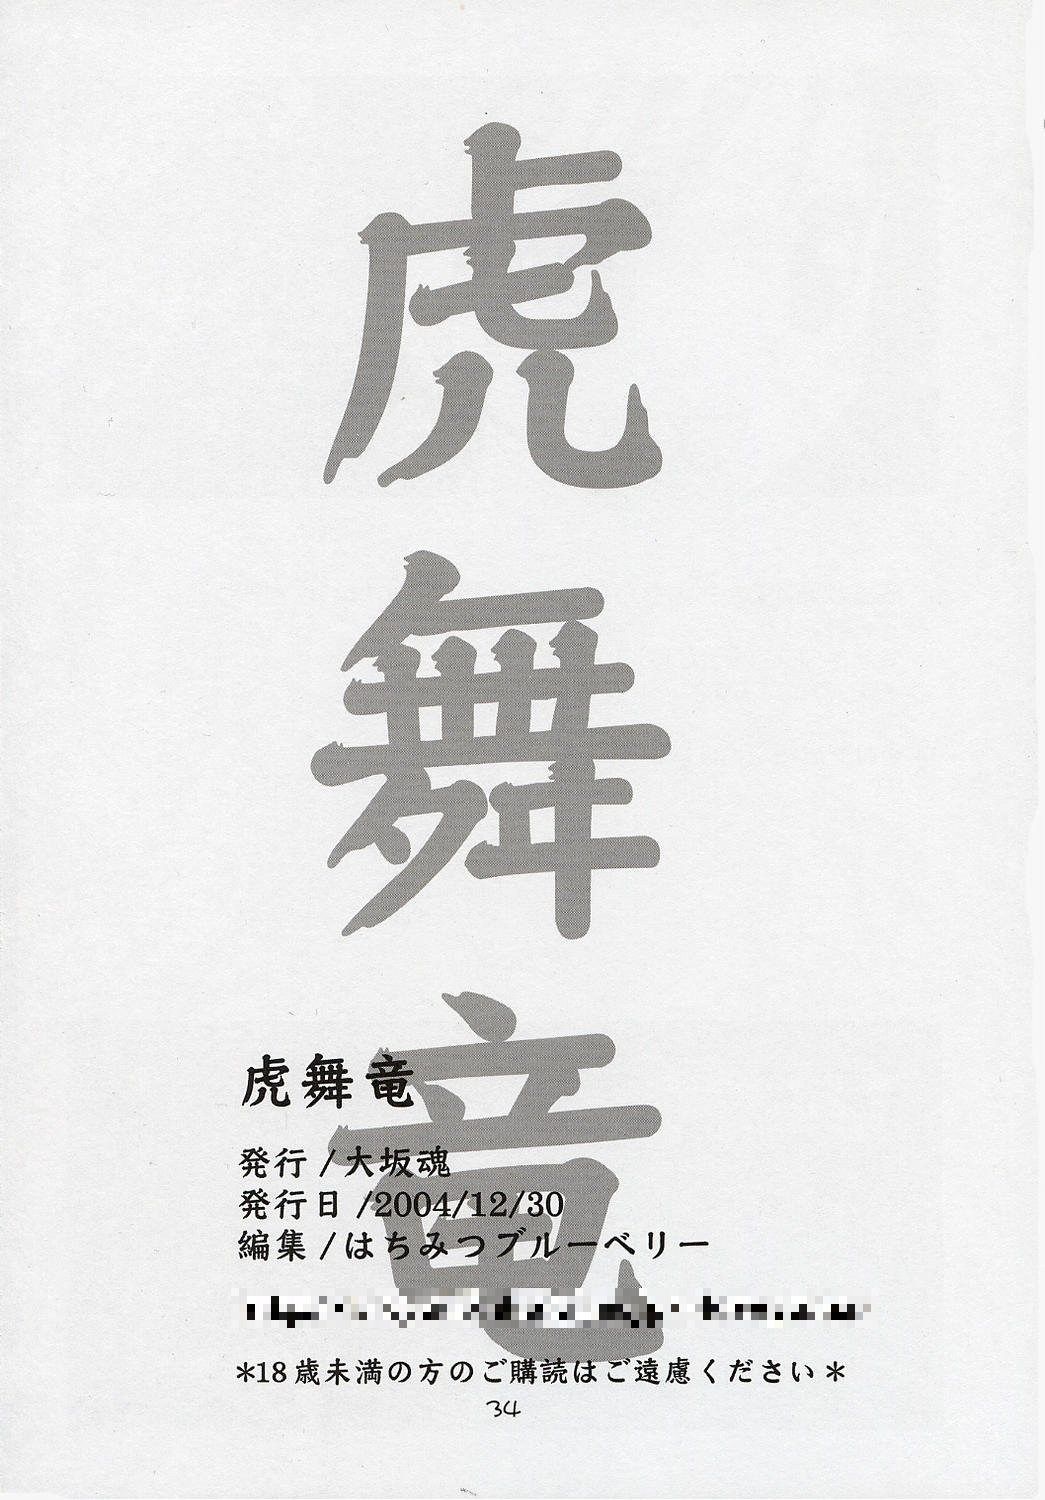 虎舞竜
虎舞竜
発行/大坂魂
発行日/2004/12/30
編集/はちみつブルーベリー
＊18歳未満の方のご購読はご遠慮ください＊
34